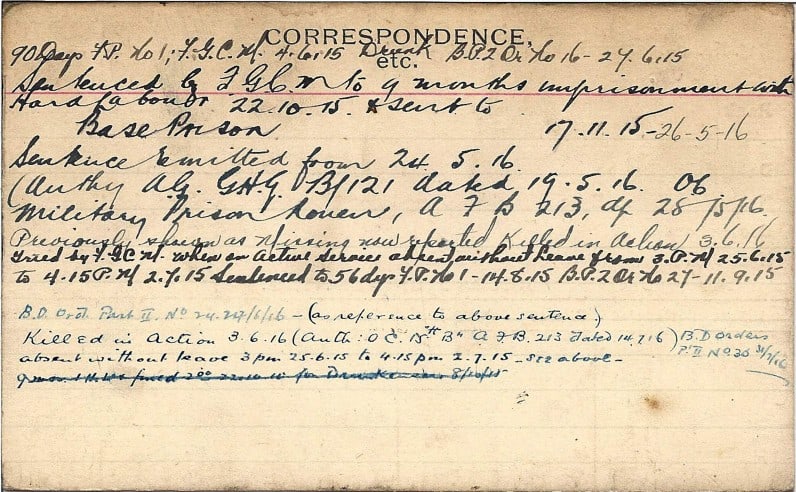 CORRESPONDENCE,
etc.
90 Days F.P. No 1; F.G.C.M. 4.6.15 Drunk B.P.2 Or No 16 - 27.6.15
Sentenced by F G C M to 9 months imprisonment with
Hard Labour. 22.10.15. & sent to
Base Prison 17.11.15 - 26-5-16
Sentence Remitted from 24.5.16.
(Authy A.G. GHQ B/121 dated 19.5.16. OC
Military Prison Rouen, A F B 213, of 28/5/16.
Previously shown as Missing now reported Killed in Action 3.6.16
Tried by F.G.C.M. When on Active Service absent without leave from 3.P.M 25.6.15
to 4.15 P.M 2.7.15 Sentenced to 56 dys F.P. No 1 - 14.8.15 B.P.2 Or No 27 - 11.9.15
B.D. Ord. Part II. No 24. 24/6/16 - (as reference to above sentence)
Killed in Action 3.6.16 (Auth: O C. 15th Bn A F B. 213 dated 14.7.16) B.D Orders
Pt II No. 30
absent without leave 3 pm 25.6.15 to 4.15 pm 2.7.15 - see above -
22.10.15 for Drunkenness 8/10/15